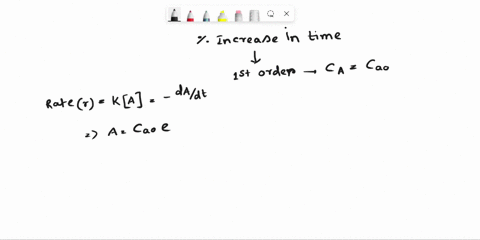 % Increase in time
↓
1st order → CA = Cao
Rate(r) = K[A] = - dA/dt
=> A = Cao e